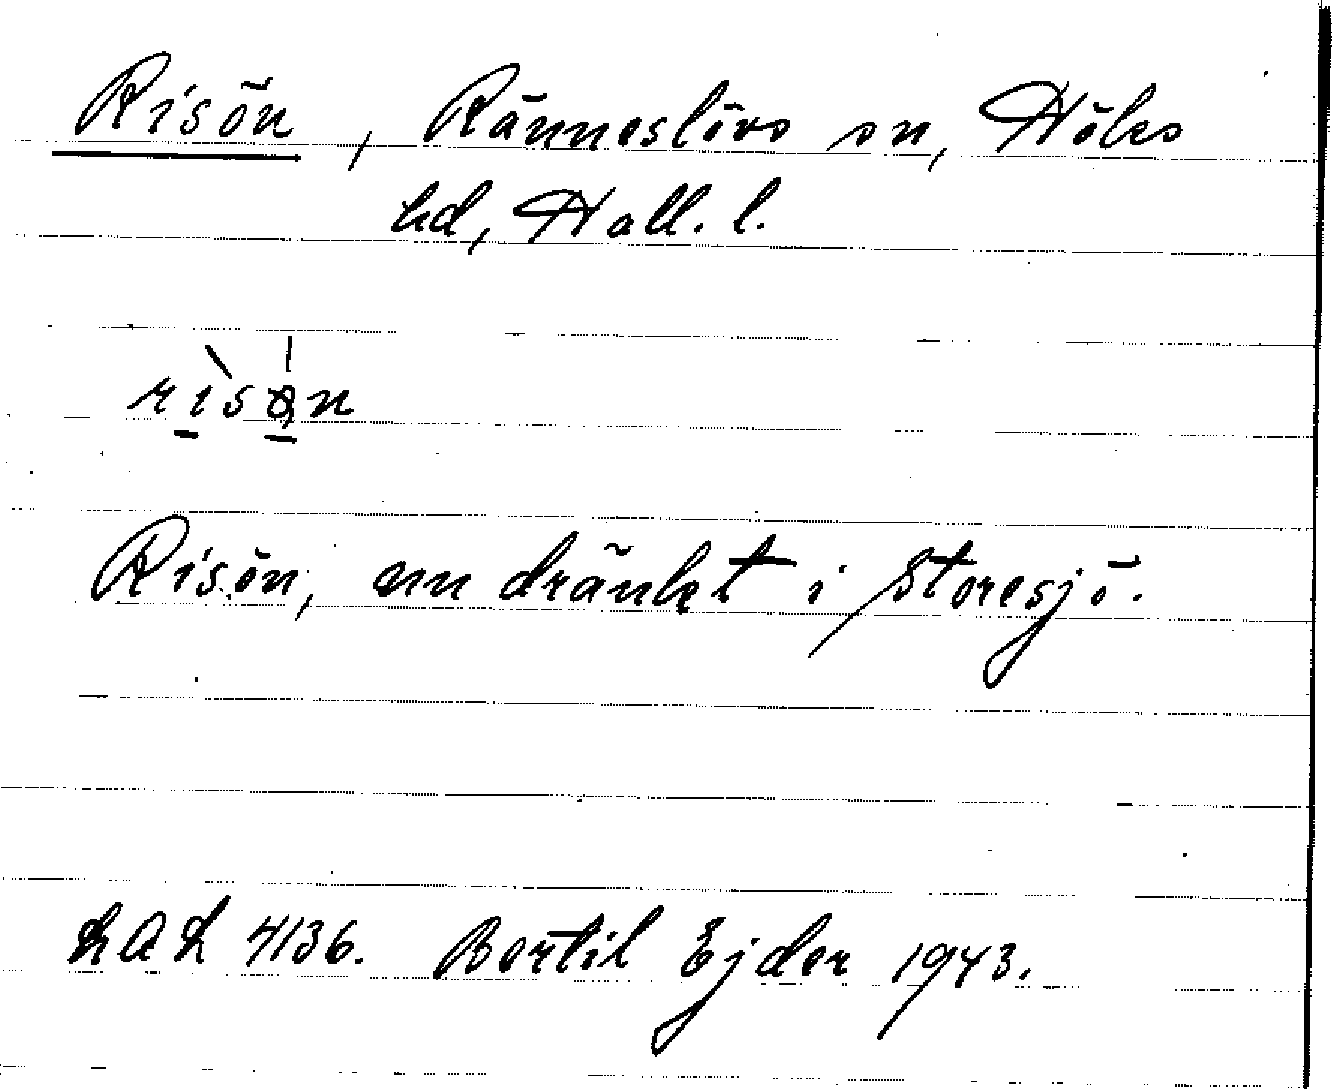 Risön, Ränneslövs sn, Höks
hd, Hall. l.
Risön, nu dränkt i Storesjö.
LAL 4136. Bertil Ejder 1943.